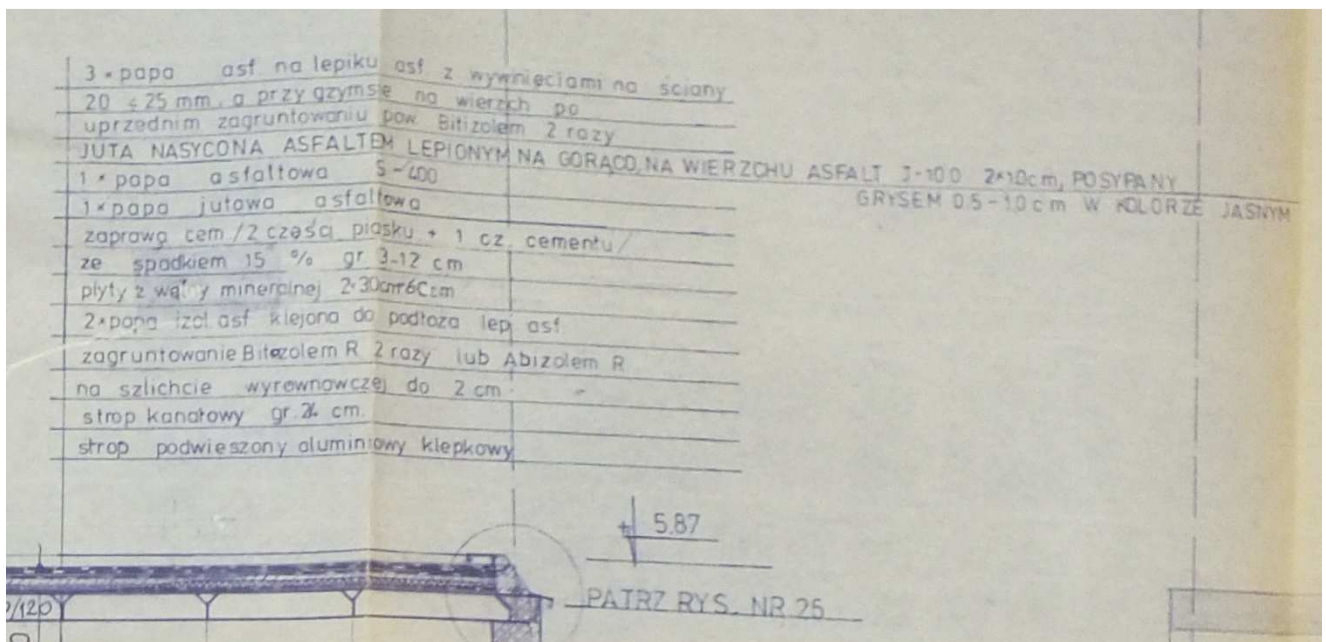 3 × papa asf na lepiku asf z wywnięciami na ściany
20 ÷ 25 mm, a przy gzymsie na wierzch po
uprzednim zagruntowaniu pow. Bitizolem 2 razy
JUTA NASYCONA ASFALTEM LEPIONYM NA GORĄCO, NA WIERZCHU ASFALT J-100 2×1.0cm, POSYPANY
GRYSEM 0.5-1.0 cm W KOLORZE JASNYM
1 × papa asfaltowa S-400
1 × papa jutowa asfaltowa
zaprawa cem /2 części piasku + 1 cz. cementu/
ze spadkiem 15 % gr 3-12 cm
płyty z wełny mineralnej
2 × papa izol. asf klejona do podłoża lep. asf.
zagruntowanie Bitozolem R 2 razy lub Abizolem R
na szlichcie wyrownawczej do 2 cm
strop kanałowy gr. 24 cm.
strop podwieszony aluminiowy klepkowy
5.87
PATRZ RYS. NR 25
/120